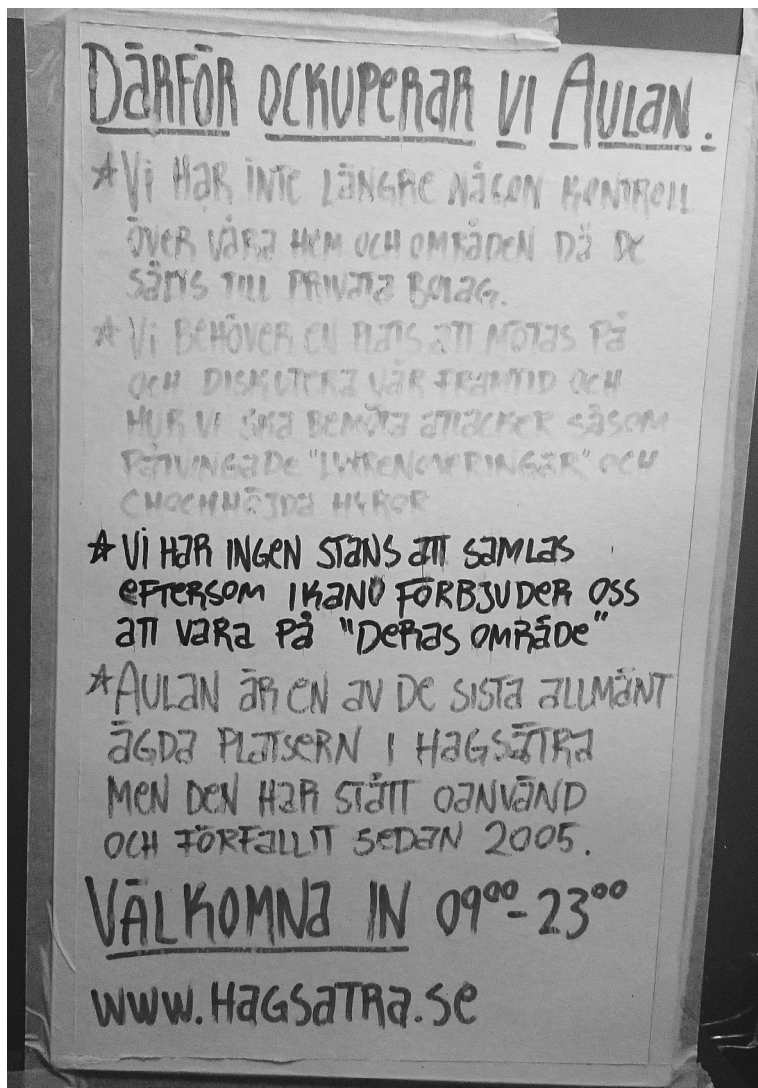 DÄRFÖR OCKUPERAR VI AULAN.
* VI HAR INTE LÄNGRE NÅGON KONTROLL
ÖVER VÅRA HEM OCH OMRÅDEN DÅ DE
SÄLJS TILL PRIVATA BOLAG.
* VI BEHÖVER EN PLATS ATT MÖTAS PÅ
OCH DISKUTERA VÅR FRAMTID OCH
HUR VI SKA BEMÖTA ATTACKER SÅSOM
PÅTVINGADE "LYXRENOVERINGAR" OCH
CHOCKHÖJDA HYROR
* VI HAR INGEN STANS ATT SAMLAS
EFTERSOM IKANO FÖRBJUDER OSS
ATT VARA PÅ "DERAS OMRÅDE"
* AULAN ÄR EN AV DE SISTA ALLMÄNT
ÄGDA PLATSERN I HAGSÄTRA
MEN DEN HAR STÅTT OANVÄND
OCH FÖRFALLIT SEDAN 2005.
VÄLKOMNA IN 09⁰⁰-23⁰⁰
WWW.HAGSATRA.SE